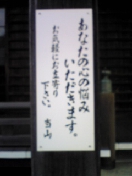 あなたの心の悩み
いただきます。
お気軽にお立寄り
下さい。
当山